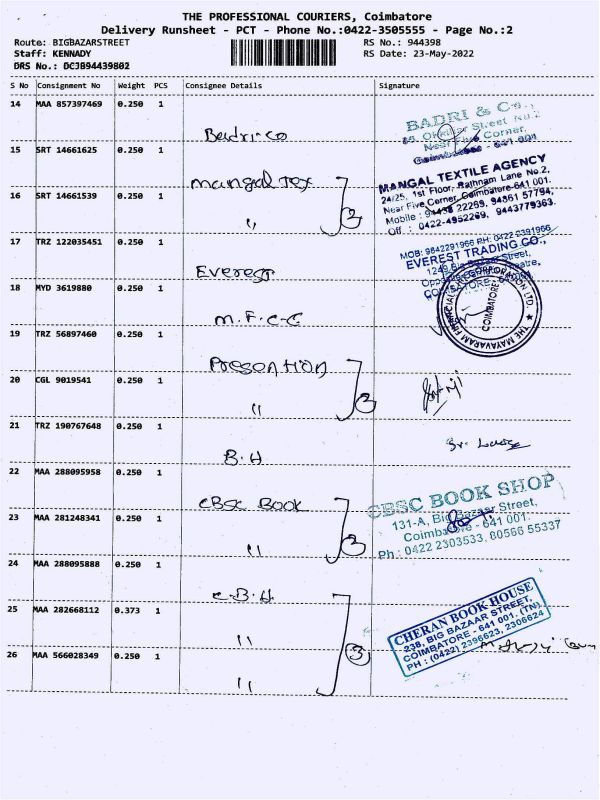 THE PROFESSIONAL COURIERS, Coimbatore
Delivery Runsheet - PCT - Phone No.:0422-3505555 - Page No.:2
Route: BIGBAZARSTREET
RS No.: 944398
Staff: KENNADY
RS Date: 23-May-2022
DRS No.: DCJB94439802
S No Consignment No Weight PCS Consignee Details Signature
14 MAA 857397469 0.250 1
Badri co
BADRI & Co.,
Near Five Corner,
15 SRT 14661625 0.250 1
Mangal Tex
MANGAL TEXTILE AGENCY
24/25, 1st Floor, Rathnam Lane No.2,
Near Five Corner, Coimbatore-641 001.
Mobile : 94438 22269, 94861 57794,
Off. : 0422-4952269, 9443779363.
16 SRT 14661539 0.250 1
" 2
17 TRZ 122035451 0.250 1
Everest
MOB: 9842291966 PH: 0422 2391966
EVEREST TRADING CO.,
18 MYD 3619880 0.250 1
M.F.C.C
COIMBATORE
19 TRZ 56897460 0.250 1
Presention
20 CGL 9019541 0.250 1
" 2
21 TRZ 190767648 0.250 1
B.H
22 MAA 288095958 0.250 1
CBSC Book
CBSC BOOK SHOP
131-A, Big Bazaar Street,
Coimbatore - 641 001.
Ph : 0422 2303533, 80566 55337
23 MAA 281248341 0.250 1
" 2
24 MAA 288095888 0.250 1
C.B.H
CHERAN BOOK HOUSE
238, BIG BAZAAR STREET,
COIMBATORE - 641 001. (TN)
PH : (0422) 2396623, 2306624
25 MAA 282668112 0.373 1
"
26 MAA 566028349 0.250 1
" 3